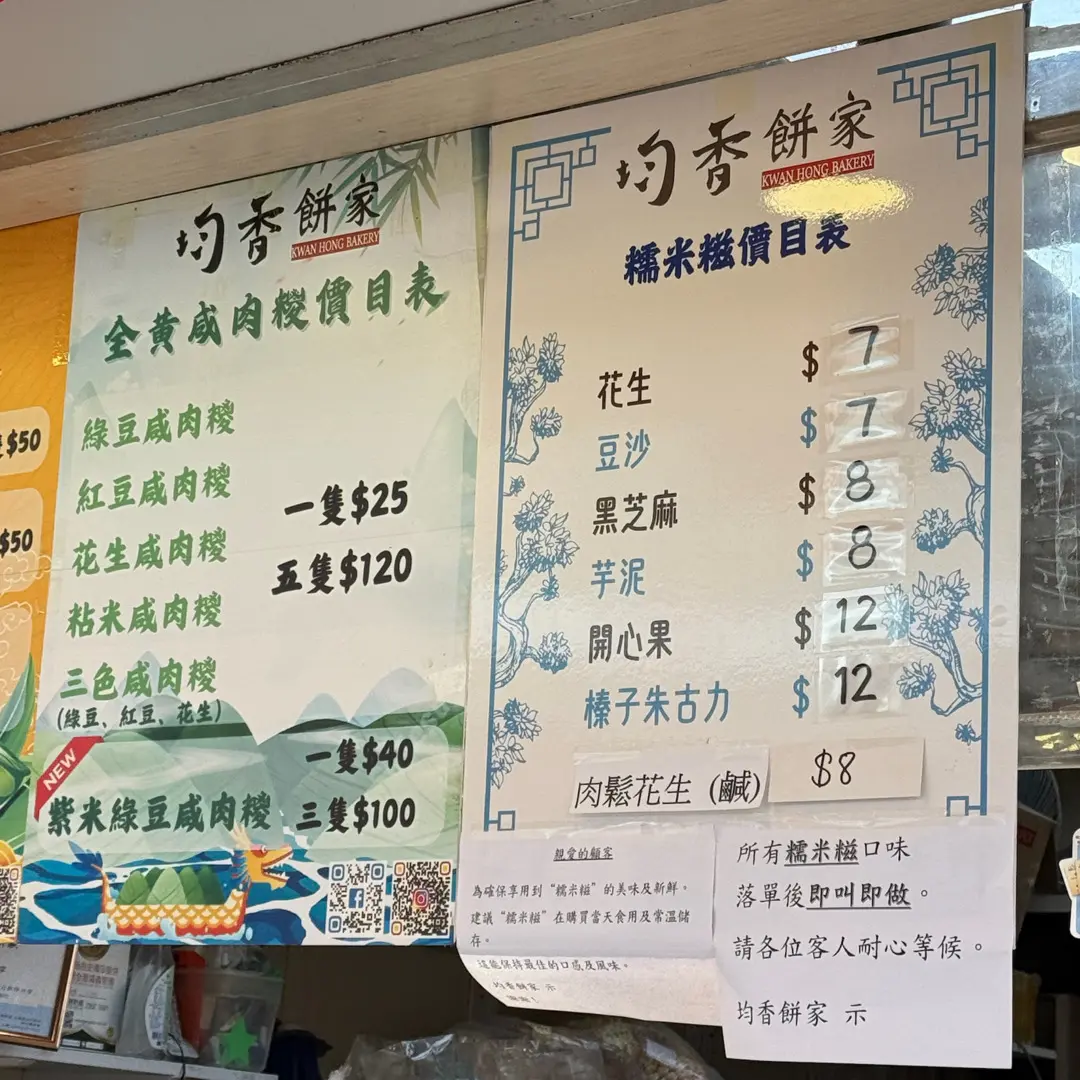 $50
$50
均香餅家
KWAN HONG BAKERY
全黃咸肉糭價目表
綠豆咸肉糭
紅豆咸肉糭
花生咸肉糭
粘米咸肉糭
一隻$25
五隻$120
三色咸肉糭
(綠豆、紅豆、花生)
NEW
紫米綠豆咸肉糭
一隻$40
三隻$100
均香餅家
KWAN HONG BAKERY
糯米糍價目表
花生 $7
豆沙 $7
黑芝麻 $8
芋泥 $8
開心果 $12
榛子朱古力 $12
肉鬆花生(鹹) $8
親愛的顧客
為確保享用到“糯米糍”的美味及新鮮。
建議“糯米糍”在購買當天食用及常溫儲
存。
這能保持最佳的口感及風味。
均香餅家 示
謝謝!
所有糯米糍口味
落單後即叫即做。
請各位客人耐心等候。
均香餅家 示